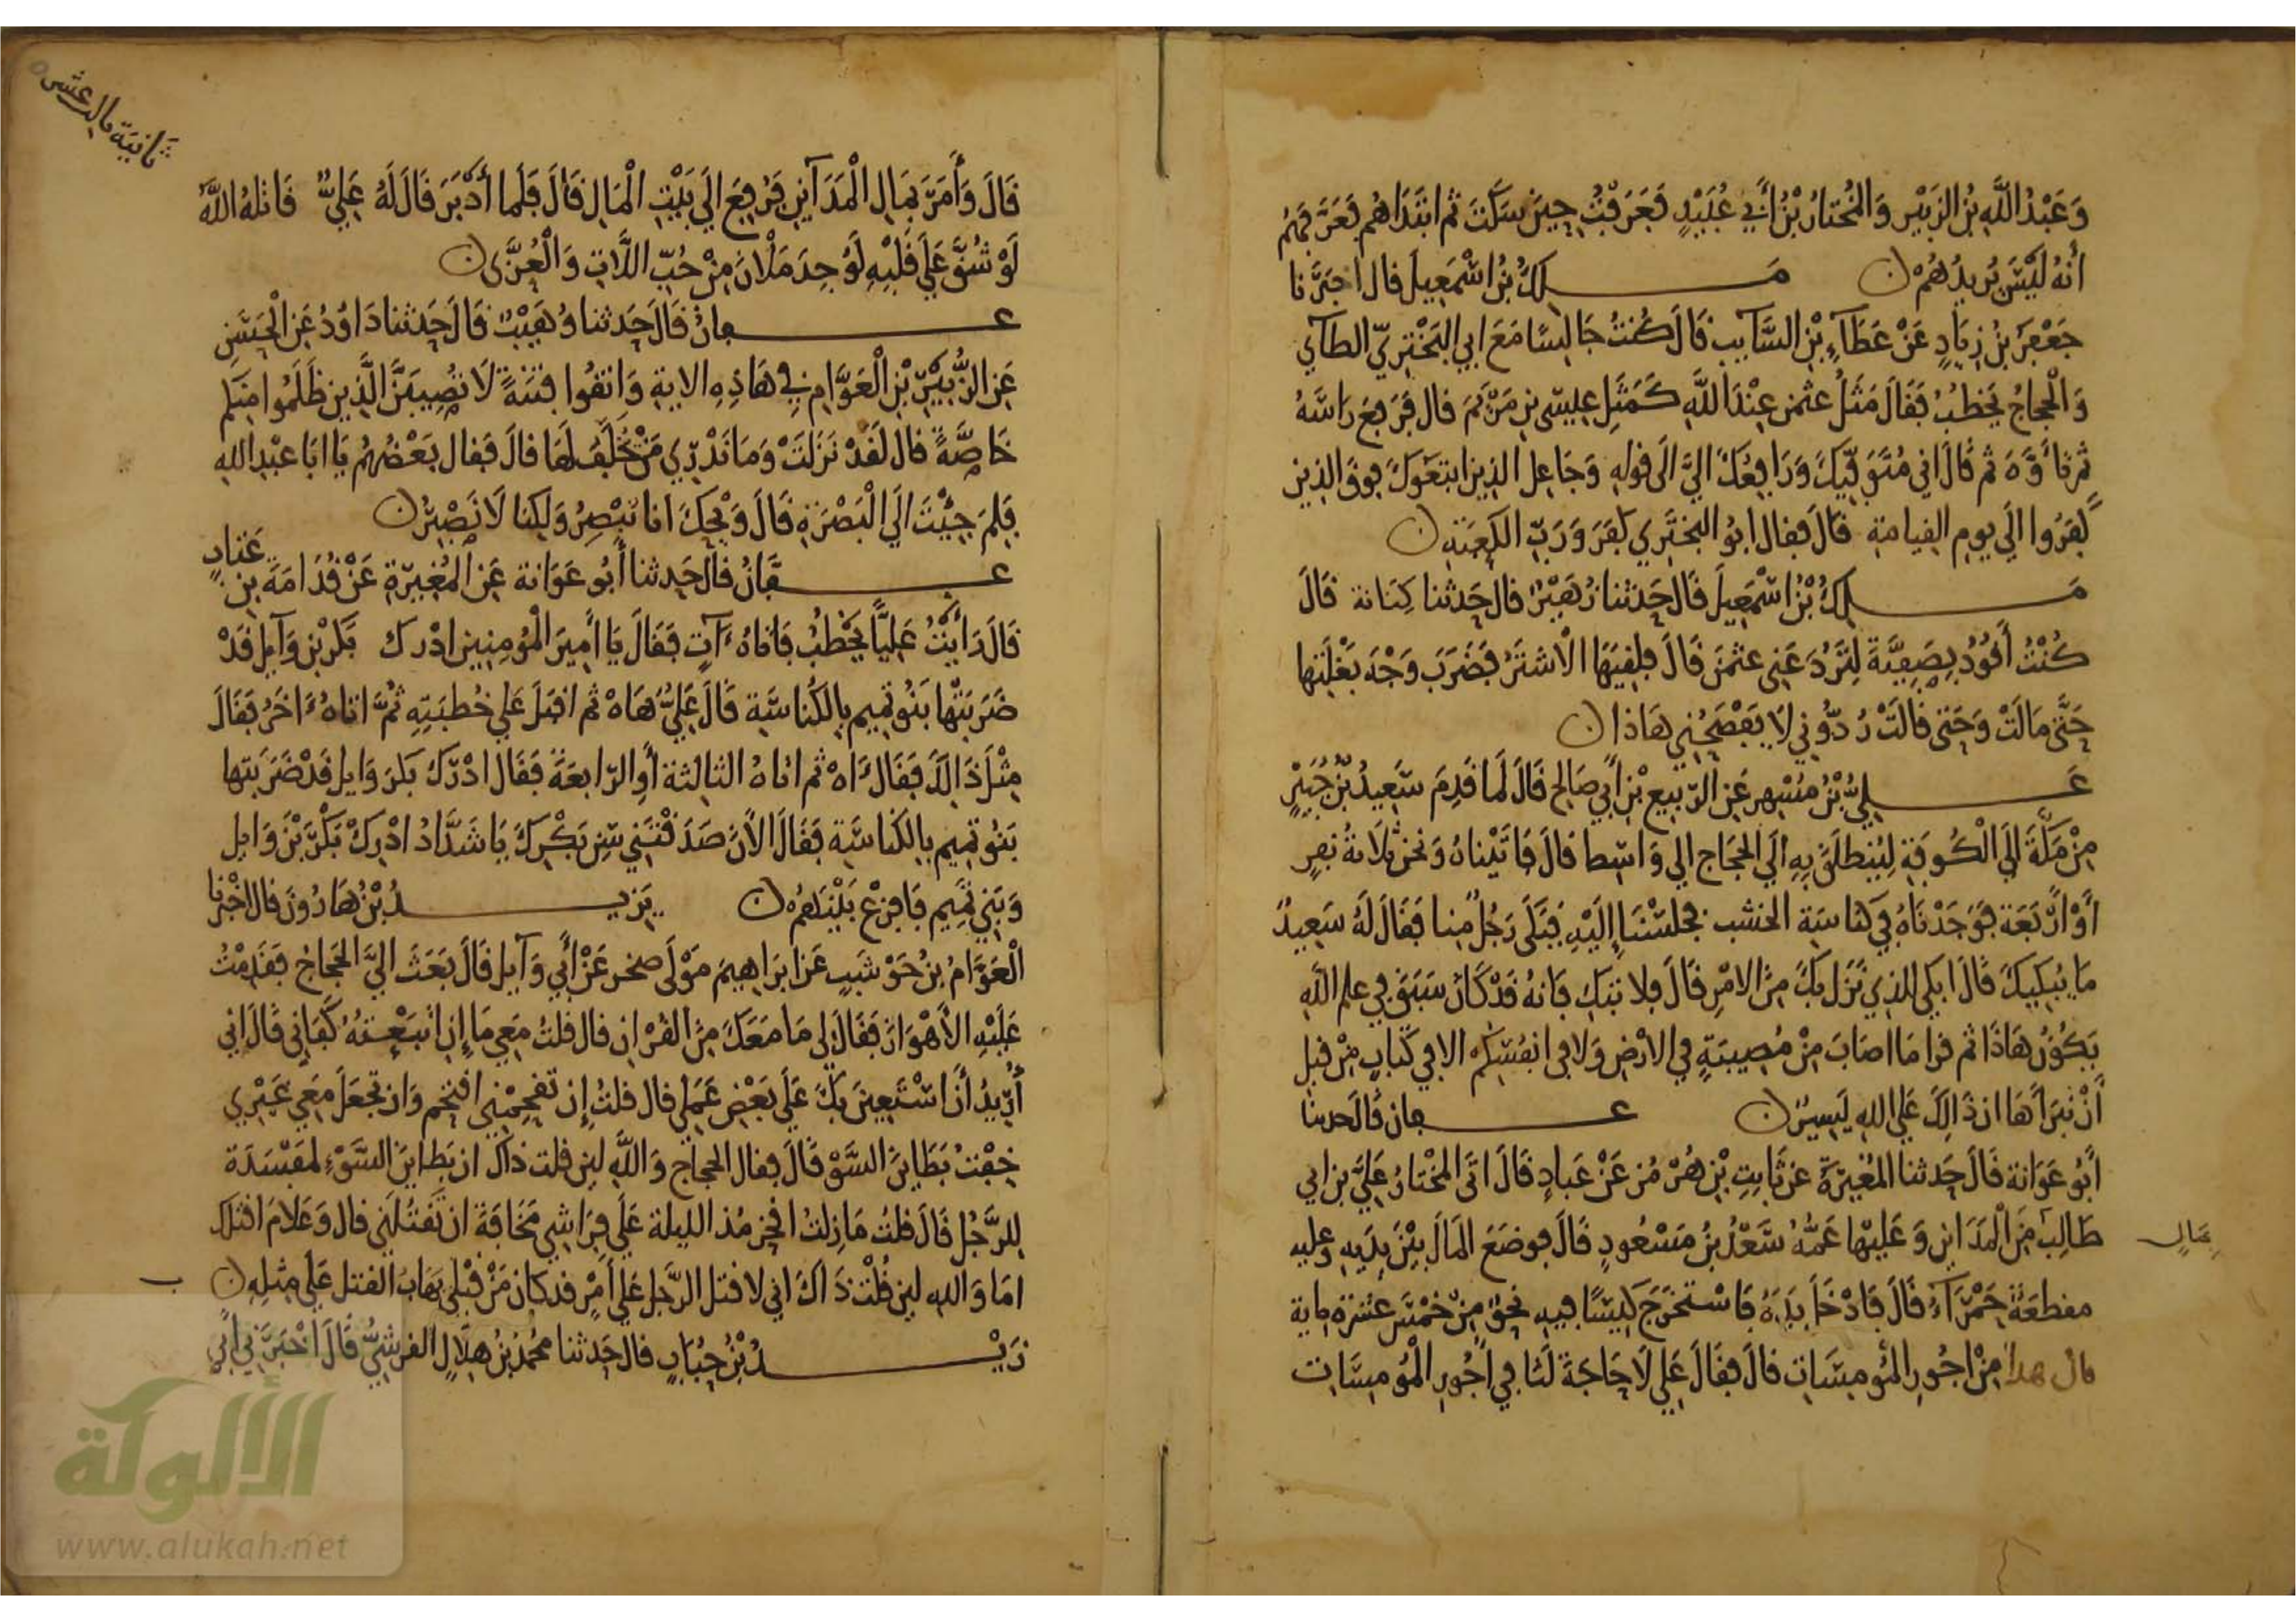 وَعَبْدُ اللَّهِ بْنُ الزُبَيْرِ وَالمُخْتَارُ بْنُ أَبِي عُبَيْدٍ فَعَرَفْتُ حِينَ سَكَتَ ثم ابْتَدَاهُم فَعَرَّفَهُمْ
أَنهُ لَيْسَ يُرِيدُهُمْ ۞ مَلِكُ بْنُ إِسْمَعِيلَ قال اخبَرَنا
جَعْفَرُ بْنُ زِيَادٍ عَنْ عَطَآءِ بْنِ السَّآيِبِ قَالَ كُنْتُ جَالِسًا مَعَ ابي البَخْتَرِيّ الطآي
وَالْحجاجُ يَخطُبُ فَقَالَ مَثَلُ عثمن عِنْدَ اللَّهِ كَمَثَلِ عِيسَى بنِ مَرْيَمَ قال فرَفَعَ رَاسَهُ
ثم تأَوَّهَ ثم قَالَ اني مُتَوَفِّيكَ وَرَافِعُكَ اليَّ الى قولهِ وَجَاعِل الذين اتبَعَوكَ فوقَ الذِين
كَفَرُوا الَى يوم القيامةِ قَالَ فقال ابُو البَخْتَري كفَرَ وَرَبِّ الكعبَةِ ۞
مَلِكُ بْنُ اسْمَعِيلَ قَالَ حَدثنا زُهَيْرٌ قال حَدثنا كِنَانة قَالَ
كُنْتُ أَقُودُ بِصَفِيَّةَ لِتَرُدَّ عَن عثمنَ قَالَ فلِقِيَهَا الْاشتَرُ فضَرَبَ وَجْهَ بَغْلَتِها
حَتَّى مَالَتْ وَحَتى قالَتْ رُدُّونِي لَا يَفْضَحُنِي هَاذا ۞
عَلِيُّ بْنُ مُسْهِرٍ عَنِ الرّبيع بْنِ أَبي صَالحٍ قَالَ لَما قَدِمَ سَعِيدُ بْنُ جُبَيْرٍ
مِنْ مَكَّةَ إلَى الْكُوفَةِ لِيُنطلَقَ بِهِ الَى الحَجاج الي وَاسِط قالَ فَأَتَيْناهُ وَنحنُ ثلَاثةُ نفِرٍ
أَوْ ارْبَعَة فَوَجَدْنَاهُ فِي كناسَة الخشب فجلَسْنَا إِلَيْهِ فبَكَى رَجُلٌ مِنا فقَالَ لَهُ سَعِيدٌ
مَا يُبْكِيكَ قَالَ ابكي للذِي نَزَلَ بِكَ مِنَ الامْرِ قَالَ فلا تبْكِ فَانهُ قَدْ كَانَ سَبَقَ فِي علم اللهِ
يَكُوْنُ هَاذَا ثم قرا مَا اصَابَ مِنْ مُصِيبَةٍ فِي الارْضِ وَلا فِي انفُسِكُم الا فِي كِتَابٍ مِنْ قبلِ
أَنْ نَبْرَأَهَا ان ذَالِكَ عَلَى اللهِ يَسِيرٌ ۞ عفان قَالَ حدثنا
أَبُو عَوَانة قَالَ حَدثنا المُغِيرَةُ عن ثَابِتِ بْنِ هُرْمُز عَنْ عَبادٍ قَالَ اتَى المُخْتَارُ عَلِيَّ بنَ ابي
طَالِبٍ مِنَ المَدَاينِ وَعَلِيْها عَمُّهُ سَعْدُ بْنُ مَسْعُودٍ قَالَ فوضَعَ المَالَ بيْنَ يدَيهِ وعليه
بِمَالٍ
مقطعَةٌ حَمْرَآءُ قَالَ فَادْخَلَ يَدَهُ فَاسْتخرَجَ كِيسًا فيهِ نحوٌ مِنْ خمْسَ عشرَةَ مِاية
قال هذا مِنْ اجُورِ المُومِسَاتِ قالَ فقَالَ عَلي لَا حَاجَةَ لَنا فِي أُجُورِ المُومِسَاتِ
ثانية مالرعشر
قَالَ وَأَمَرَ بِمَالِ الْمَدَآينِ فرُفِعَ الَي بَيْتِ الْمَالِ قَالَ فَلَما أَدْبَرَ قَالَ لَهُ عَلِيٌّ قَاتلهُ اللَّهُ
لَوْ شُقَّ عَلَى قَلْبِهِ لَوُجِدَ مَلْانَ مِنْ حُبِّ اللَّاتِ وَالْعُزَّى ۞
عفانُ قَالَ حَدثنا وُهَيْبٌ قَالَ حَدثنا دَاوُدُ عَنِ الْحَسَنِ
عَنِ الزُّبَيْرِ بْنِ الْعَوَّامِ فِي هَاذِهِ الايةِ وَاتقُوا فِتنَةً لَا تُصِيبَنَّ الَّذِينَ ظَلَمُوا مِنكم
خَاصَّةً قالَ لَقَدْ نَزَلَتْ وَمَا نَدْرِي مَنْ تخَلَّفَ لهَا قالَ فقال بَعْضُهُم يَا ابَا عَبْدِ اللهِ
فلِمَ جِيْتَ الَي الْبَصْرَةِ قَالَ وَيْحَكَ انا نبْصِرُ وَلكِنا لَا نَصْبِرُ ۞
عفانُ قالَ حَدثنا أَبُو عَوَانة عَنِ المُغِيرَةِ عَنْ قُدَامَةَ بنِ عَتابٍ
قَالَ رَأَيْتُ عَلِيًّا يَخْطُبُ فَاتاهُ ءَاتٍ فقَالَ يَا أَمِيرَ الْمُومِنِينَ ادْرِك بَكرَ بْنَ وَآيلٍ قَدْ
ضَرَبَتْها بَنُو تمِيمٍ بِالكُناسَة قَالَ عَلِيٌّ هَاهْ ثم اقبَلَ عَلَي خُطبَتِهِ ثُمَّ اتاهُ ءَاخَرُ فقَالَ
مِثْلَ ذَالِكَ فقَالَ ءَاهْ ثم اتاهُ الثالثةَ أَوِ الرابِعَةَ فقَال ادْرِكْ بَكرَ وَايلٍ قَدْ ضَرَبتها
بَنُو تمِيمٍ بِالكناسَة فقَالَ الْانَ صَدَقْتَنِي سِن بَكْرِكَ يَا شَدَّادُ ادْرِكْ بَكْرَ بْنَ وَايلٍ
وَبَنِي تمِيمٍ فَافرِعْ بَيْنَهُمْ ۞ يزِيدُ بْنُ هَارُونَ قال اخْبرنا
الْعَوَّامُ بْنُ حَوْشَبٍ عَنِ ابرَاهِيمَ مَوْلَى صخرٍ عَنْ أَبِي وَآيلٍ قَالَ بَعَثَ اليَّ الحَجاجُ فقَدِمْتُ
عَلَيْهِ الأَهْوَازَ فقَالَ لِي مَا مَعَكَ مِنَ القرْانِ قال قلتُ مَعِي مَا إِنِ اتبَعْتهُ كَفَانِي قَالَ انِي
أُرِيدُ أَنْ اسْتَعِينَ بِكَ عَلَى بَعْضِ عَمَلِي قال قلتُ إِن تقحِمْنِي اقتحِم وَان تجْعَلَ مَعِي غَيْرِي
خِفْتُ بَطَاينَ السَّوْ قَالَ فقال الحجاج وَاللَّهِ لين قلت ذاكَ ان بَطاينَ السَّوْءِ لمَفسَدَة
لِلرَّجُلِ قَالَ قلتُ مَا زِلتُ اقحزُ مُذ الليلة عَلَى فِرَاشِي مَخَافَةَ ان تقتُلَنِي قال وَعَلَامَ اقتلك
امَا وَاللهِ لين قُلْتَ ذَاكَ اني لا قتل الرَّجلَ عَلَى أَمْرٍ قد كان مَنْ قبْلي يَهَابُ القتل عَلَى مِثلِهِ ۞
زَيْدُ بْنُ حُبَابٍ قال حَدثنا مُحمدُ بْنُ هِلَالٍ القرشِيُّ قَالَ أَخْبَرَنِي أَبِي
الألوكة
www.alukah.net